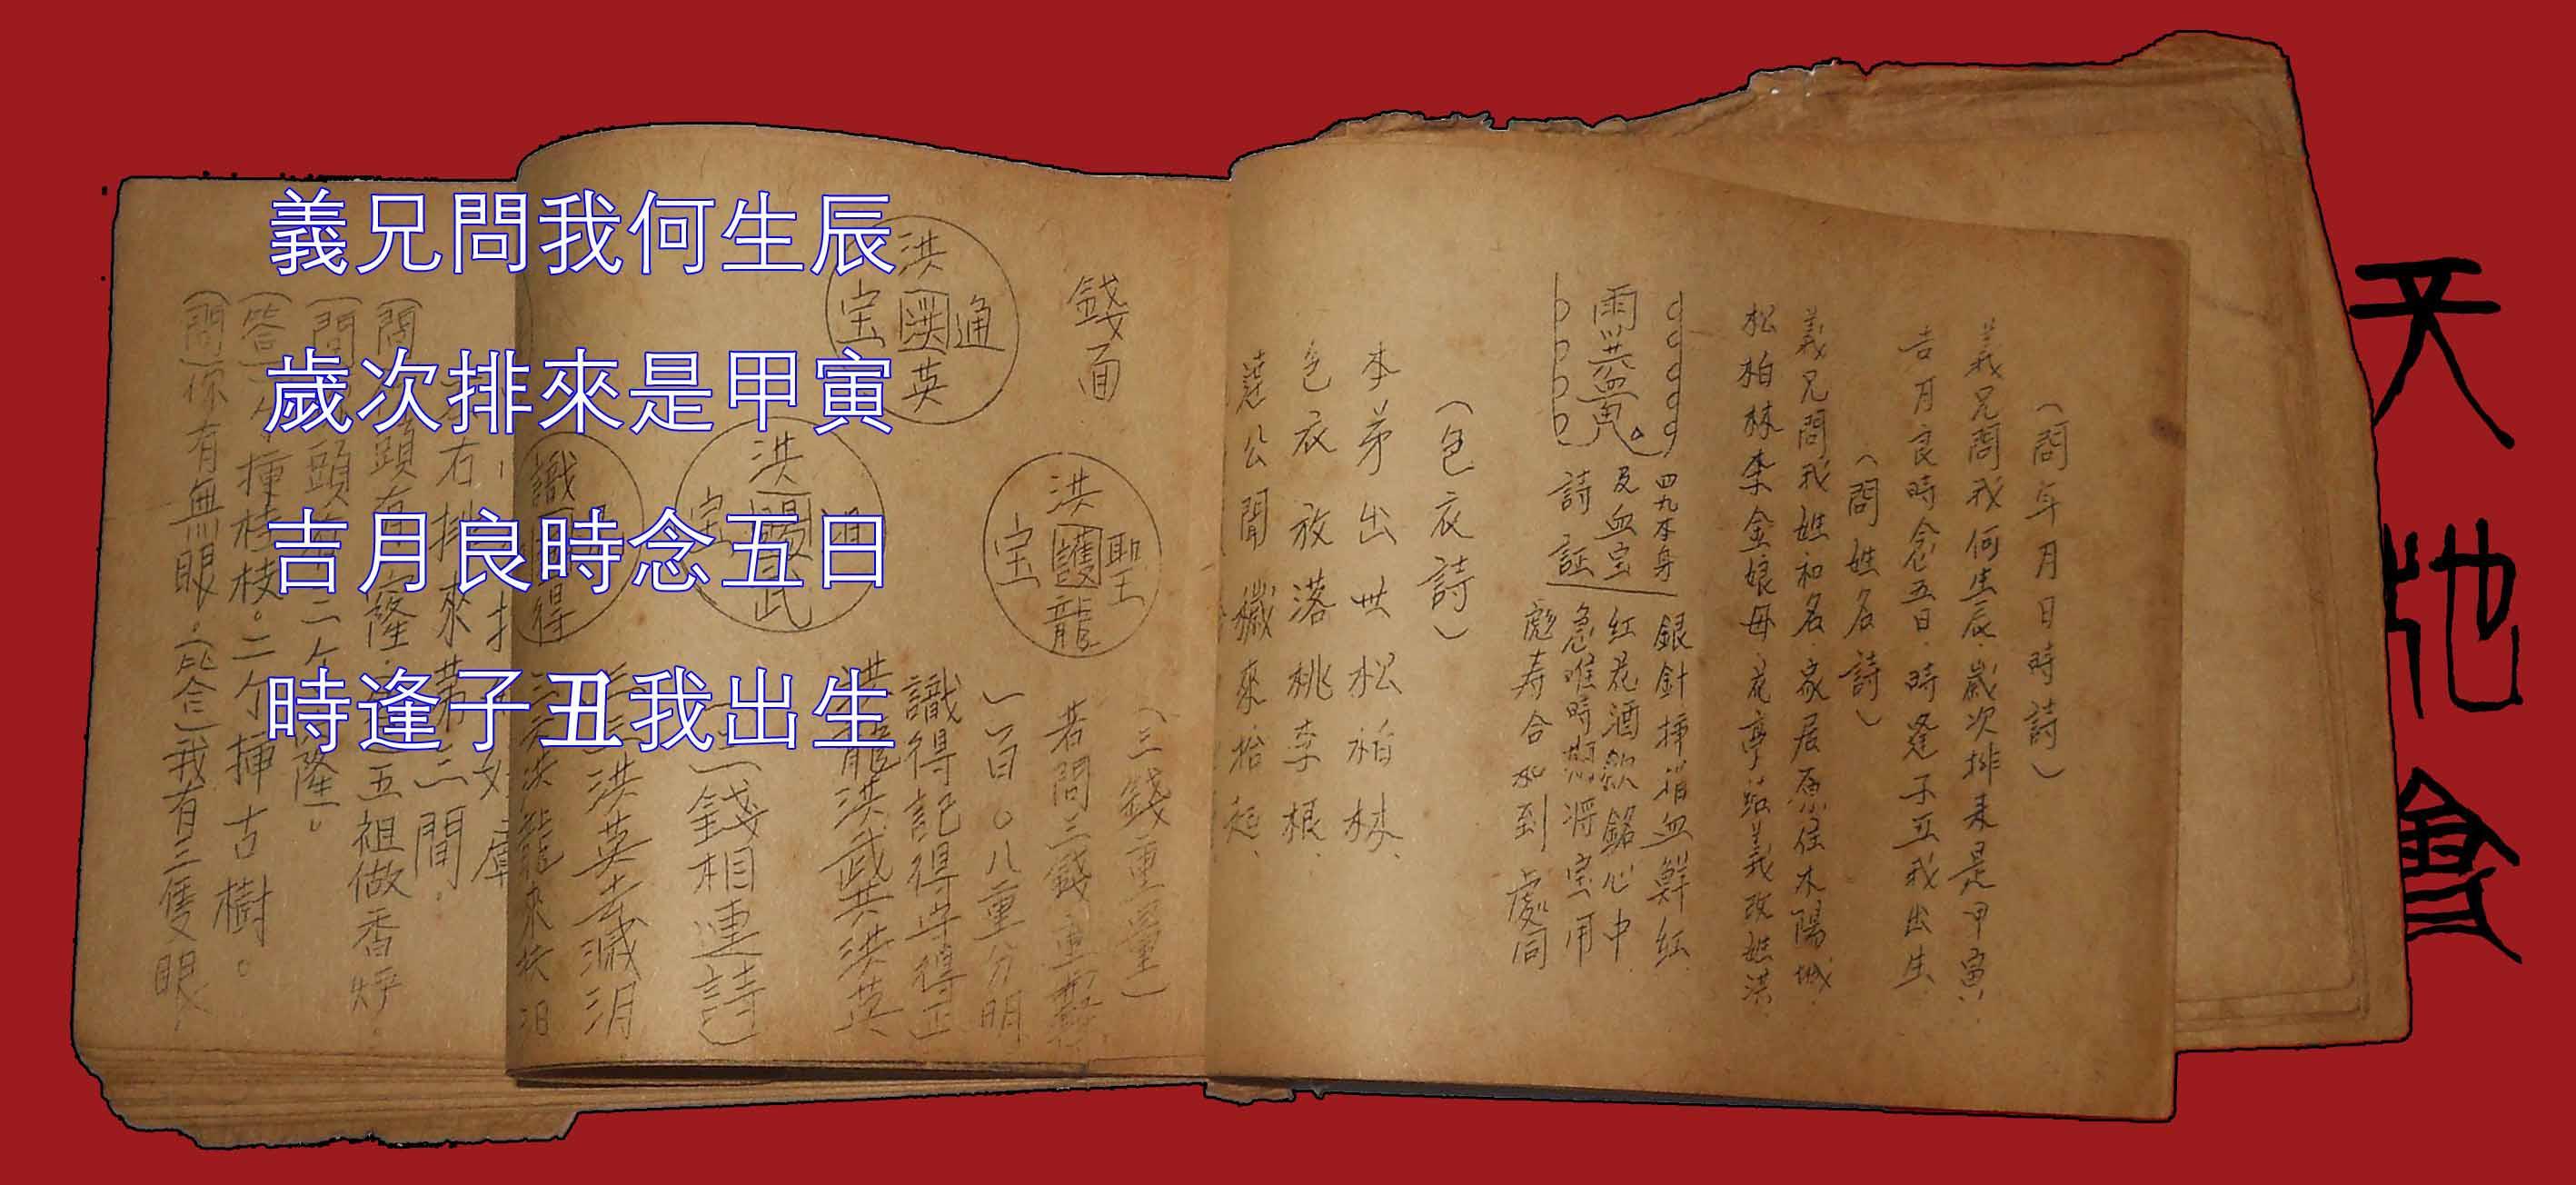 義兄問我何生辰
歲次排來是甲寅
吉月良時念五日
時逢子丑我出生
天地會
(問年月日時詩)
義兄問我何生辰.歲次排來是甲寅.
吉月良時念五日.時逢子丑我出生.
(問姓名詩)
義兄問我姓和名.家居原住木陽城.
松柏林李金娘母.花亭結義改姓洪.
四九本身
及血宝
詩証
銀針挿指血鮮紅
紅花酒飲銘心中
急难時将宝用
彪寿合和到處同
(色衣詩)
本弟出世松柏林.
色衣放落桃李根.
蓮公聞 來拾起.
錢面
洪英宝通
洪龍宝聖護
洪武宝
識得
(三錢重量)
若問三錢重
一百〇八重分明
識得記得守得正
洪龍洪武共洪英
(三錢相連詩)
洪英去滅汨
右排來第二間.
(問)頭有
五祖做香炉.
(問)頭 二个隆.
(答)一个挿桂枝。二个挿古樹。
(問)你有無眼.(答)我有三隻眼.